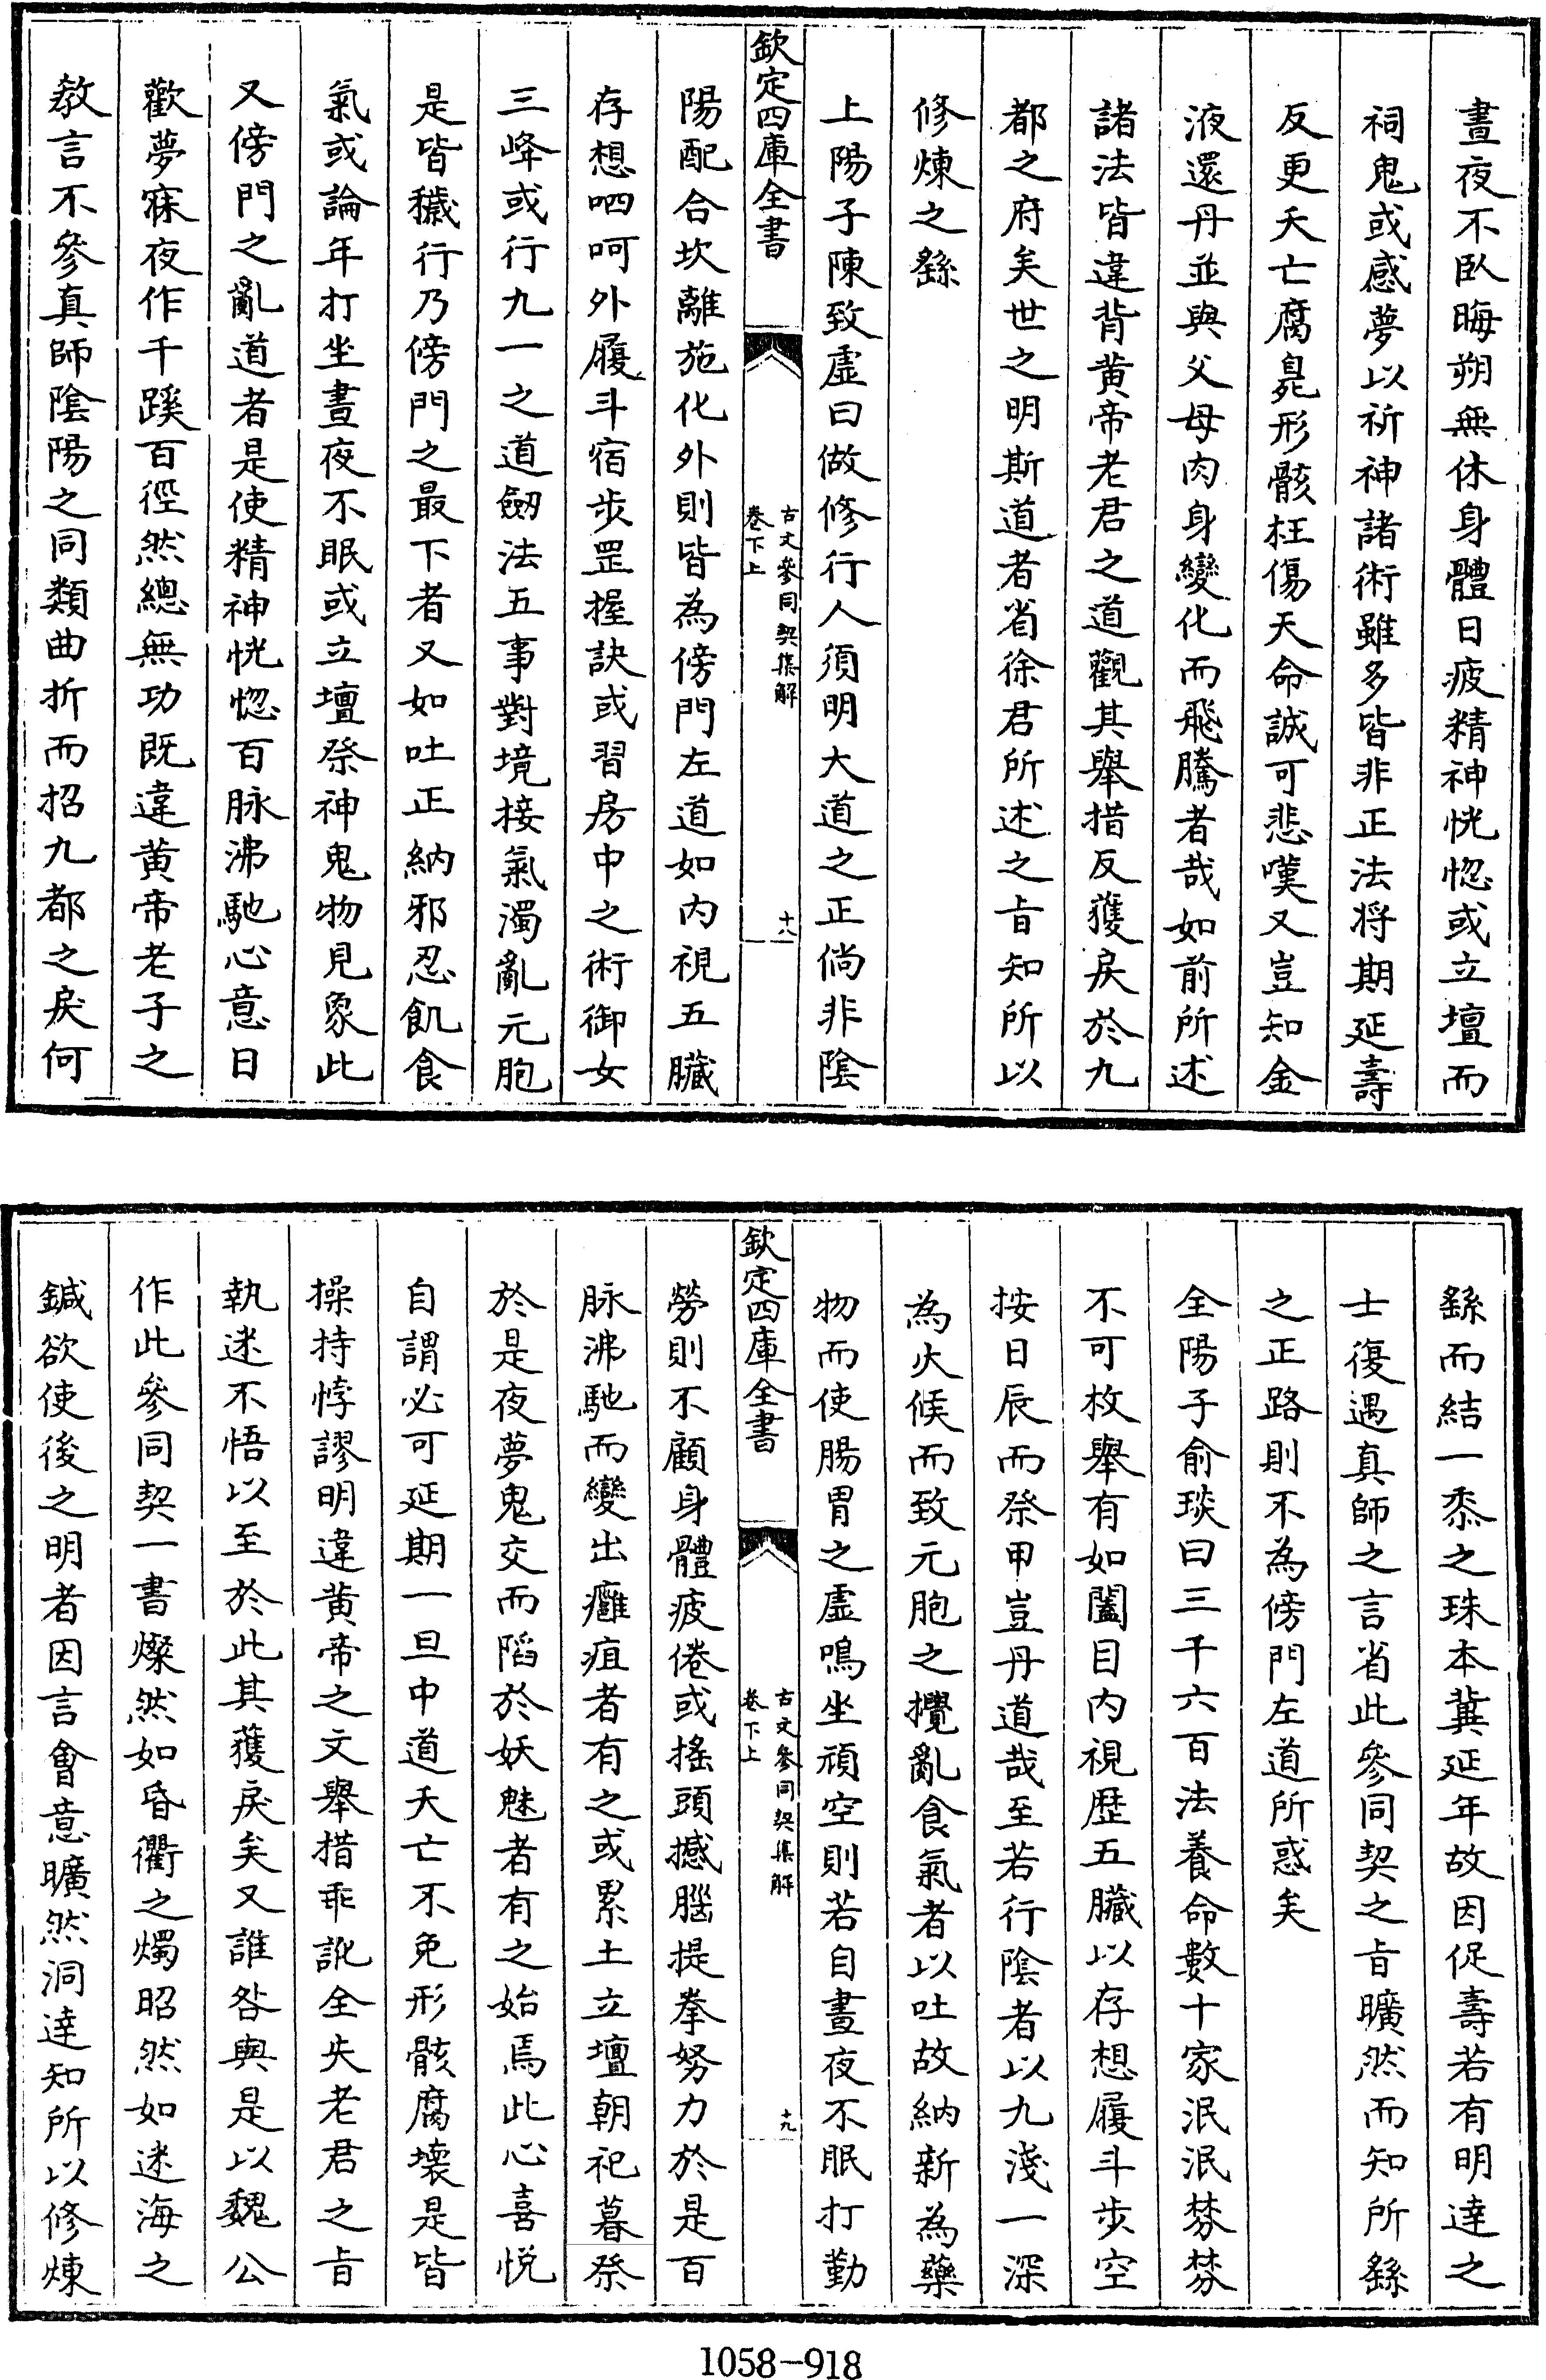 晝夜不臥晦朔無休身體日疲精神恍惚或立壇而
祠鬼或感夢以祈神諸術雖多皆非正法将期延壽
反更夭亡腐臰形骸枉傷天命誠可悲嘆又豈知金
液還丹並與父母肉身變化而飛騰者哉如前所述
諸法皆違背黄帝老君之道觀其舉措反獲戾於九
都之府矣世之明斯道者省徐君所述之㫖知所以
修煉之繇
上陽子陳致虛曰做修行人須明大道之正倘非陰
欽定四庫全書
古文參同契集解
卷下上
十八
陽配合坎離施化外則皆為傍門左道如内視五臟
存想呬呵外履斗宿步罡握訣或習房中之術御女
三峰或行九一之道劒法五事對境接氣濁亂元胞
是皆穢行乃傍門之最下者又如吐正納邪忍飢食
氣或論年打坐晝夜不眠或立壇祭神鬼物見象此
又傍門之亂道者是使精神恍惚百脉沸馳心意日
歡夢寐夜作千蹊百徑然總無功既違黄帝老子之
教言不參真師陰陽之同類曲折而招九都之戾何
繇而結一黍之珠本冀延年故因促壽若有明達之
士復遇真師之言省此參同契之㫖曠然而知所繇
之正路則不為傍門左道所惑矣
全陽子俞琰曰三千六百法養命數十家泯泯棼棼
不可枚舉有如闔目内視歴五臟以存想履斗步空
按日辰而祭甲豈丹道哉至若行陰者以九淺一深
為火候而致元胞之攪亂食氣者以吐故納新為藥
物而使腸胃之虛鳴坐頑空則若自晝夜不眠打勤
欽定四庫全書
古文參同契集解
卷下上
十九
勞則不顧身體疲倦或搖頭撼腦提拳努力於是百
脉沸馳而變出癰疽者有之或累土立壇朝祀暮祭
於是夜夢鬼交而陷於妖魅者有之始焉此心喜悦
自謂必可延期一旦中道夭亡不免形骸腐壞是皆
操持悖謬明違黄帝之文舉措乖訛全失老君之㫖
執迷不悟以至於此其獲戾矣又誰咎與是以魏公
作此參同契一書燦然如昏衢之燭昭然如迷海之
鍼欲使後之明者因言會意曠然洞達知所以修煉
1058-918